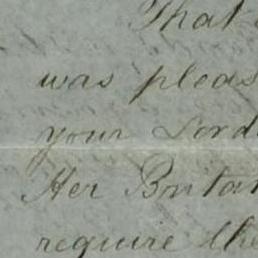 That
was pleas
your Lord
Her Britan
require the